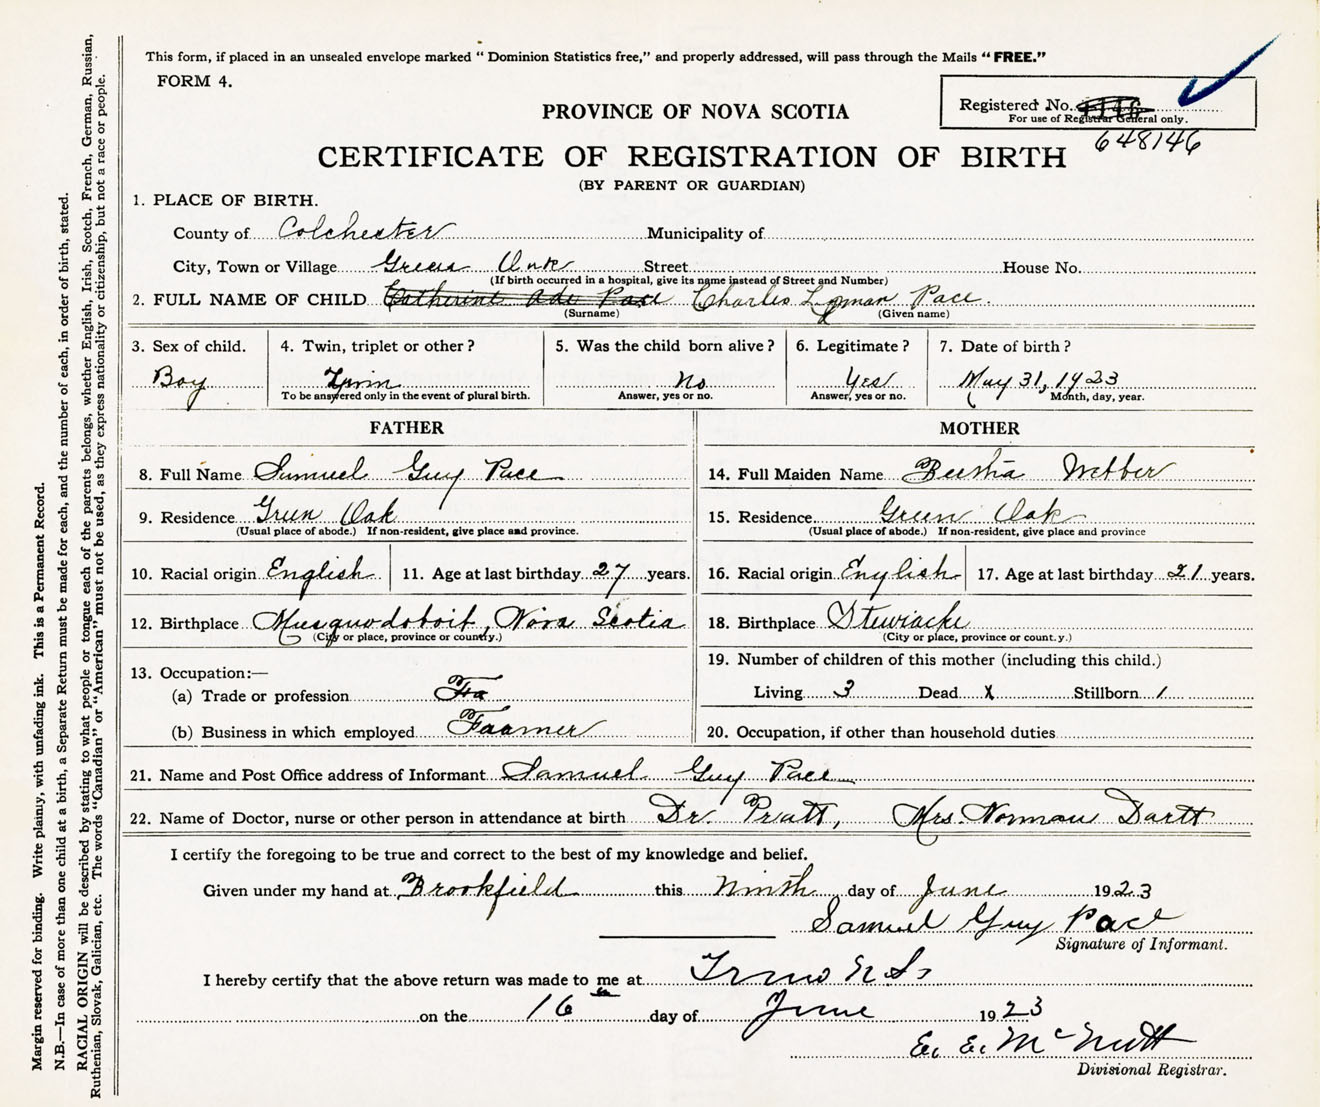 This form, if placed in an unsealed envelope marked “ Dominion Statistics free,” and properly addressed, will pass through the Mails “ FREE.”
FORM 4.
Registered No.
For use of Registrar General only.
648146
PROVINCE OF NOVA SCOTIA
CERTIFICATE OF REGISTRATION OF BIRTH
(BY PARENT OR GUARDIAN)
1. PLACE OF BIRTH.
County of Colchester Municipality of
City, Town or Village Green Oak Street House No.
(If birth occurred in a hospital, give its name instead of Street and Number)
2. FULL NAME OF CHILD Catherine Ada Pace Charles Lyman Pace.
(Surname) (Given name)
3. Sex of child. 4. Twin, triplet or other ? 5. Was the child born alive ? 6. Legitimate ? 7. Date of birth ?
Boy Twin No Yes May 31, 1923
To be answered only in the event of plural birth. Answer, yes or no. Answer, yes or no. Month, day, year.
FATHER MOTHER
8. Full Name Samuel Guy Pace 14. Full Maiden Name Bertha Webber
9. Residence Green Oak 15. Residence Green Oak
(Usual place of abode.) If non-resident, give place and province. (Usual place of abode.) If non-resident, give place and province
10. Racial origin English 11. Age at last birthday 27 years. 16. Racial origin English 17. Age at last birthday 21 years.
12. Birthplace Musquodoboit, Nova Scotia 18. Birthplace Stewiacke
(City or place, province or country.) (City or place, province or count.y.)
13. Occupation:— 19. Number of children of this mother (including this child.)
(a) Trade or profession Fa Living 3 Dead X Stillborn 1
(b) Business in which employed Faarmer 20. Occupation, if other than household duties
21. Name and Post Office address of Informant Samuel Guy Pace
22. Name of Doctor, nurse or other person in attendance at birth Dr. Pratt, Mrs. Norman Dartt
I certify the foregoing to be true and correct to the best of my knowledge and belief.
Given under my hand at Brookfield this Ninth day of June 1923
Samuel Guy Pace
Signature of Informant.
I hereby certify that the above return was made to me at Truro N.S.
on the 16 day of June 1923
E. E. McNutt
Divisional Registrar.
Margin reserved for binding. Write plainly, with unfading ink. This is a Permanent Record.
N.B.—In case of more than one child at a birth, a Separate Return must be made for each, and the number of each, in order of birth, stated.
RACIAL ORIGIN will be described by stating to what people or tongue each of the parents belongs, whether English, Irish, Scotch, French, German, Russian,
Ruthenian, Slovak, Galician, etc. The words “Canadian” or “American” must not be used, as they express nationality or citizenship, but not a race or people.